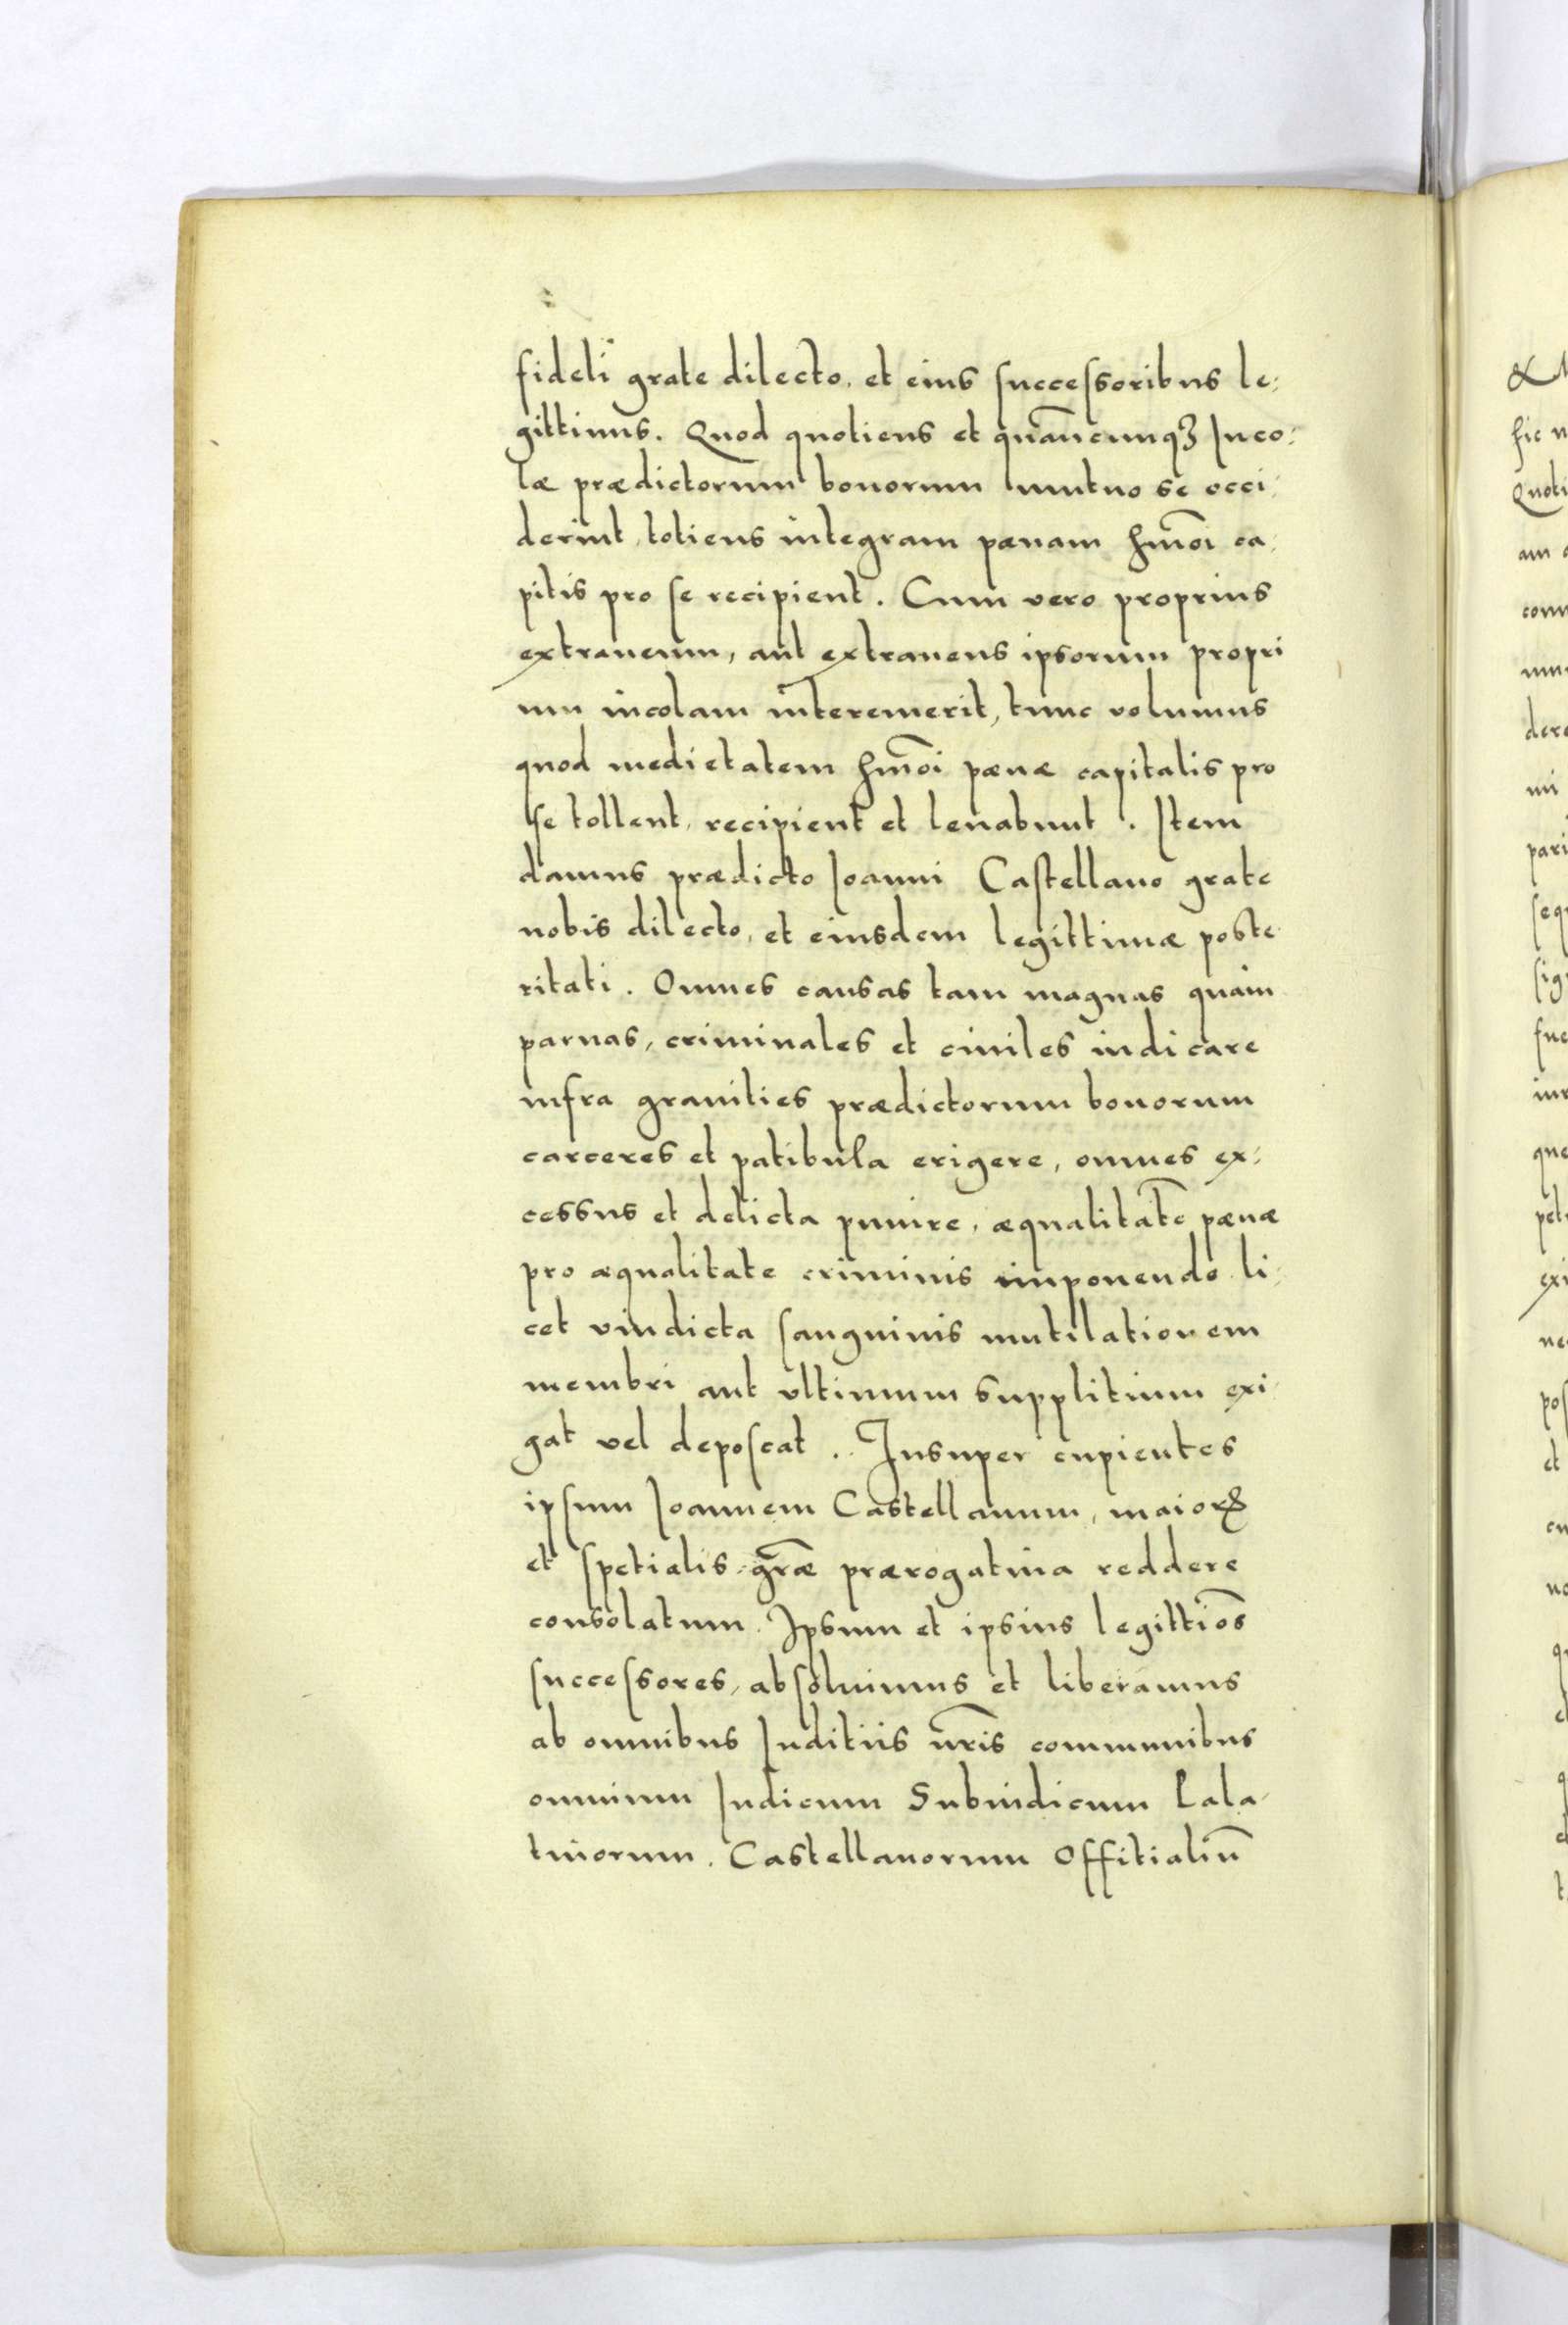 fideli grate dilecto, et eius successoribus le:
gittimis. Quod quotiens et quãcunqꝫ Inco:
læ prædictorum bonorum mutuo se occi:
derint, totiens integram pænam hmõi ca:
pitis pro se recipient. Cum vero proprius
extraneum, aut extraneus ipsorum propri
um incolam interemerit, tunc volumus
quod medietatem hmõi pænæ capitalis pro
se tollent, recipient et leuabunt. Item
damus prædicto Ioanni Castellano grate
nobis dilecto, et eiusdem legittimæ poste
ritati. Omnes causas tam magnas quàm
paruas, criminales et ciuiles iudicare
infra granities prædictorum bonorum
carceres et patibula erigere, omnes ex:
cessus et delicta punire, æqualitatẽ pænæ
pro æqualitate criminis imponendo li:
cet vindicta sanguinis mutilationem
membri aut vltimum supplitium exi:
gat vel deposcat. Insuper cupientes
ipsum Ioannem Castellanum, maioꝝ
et spetialis grãæ prærogatiua reddere
consolatum. Ipsum et ipsius legittiõs
successores, absoluimus et liberamus
ab omnibus Iuditiis nr̃is communibus
omnium Iudicum Subiudicum Pala:
tinorum. Castellanorum Offitialiũ